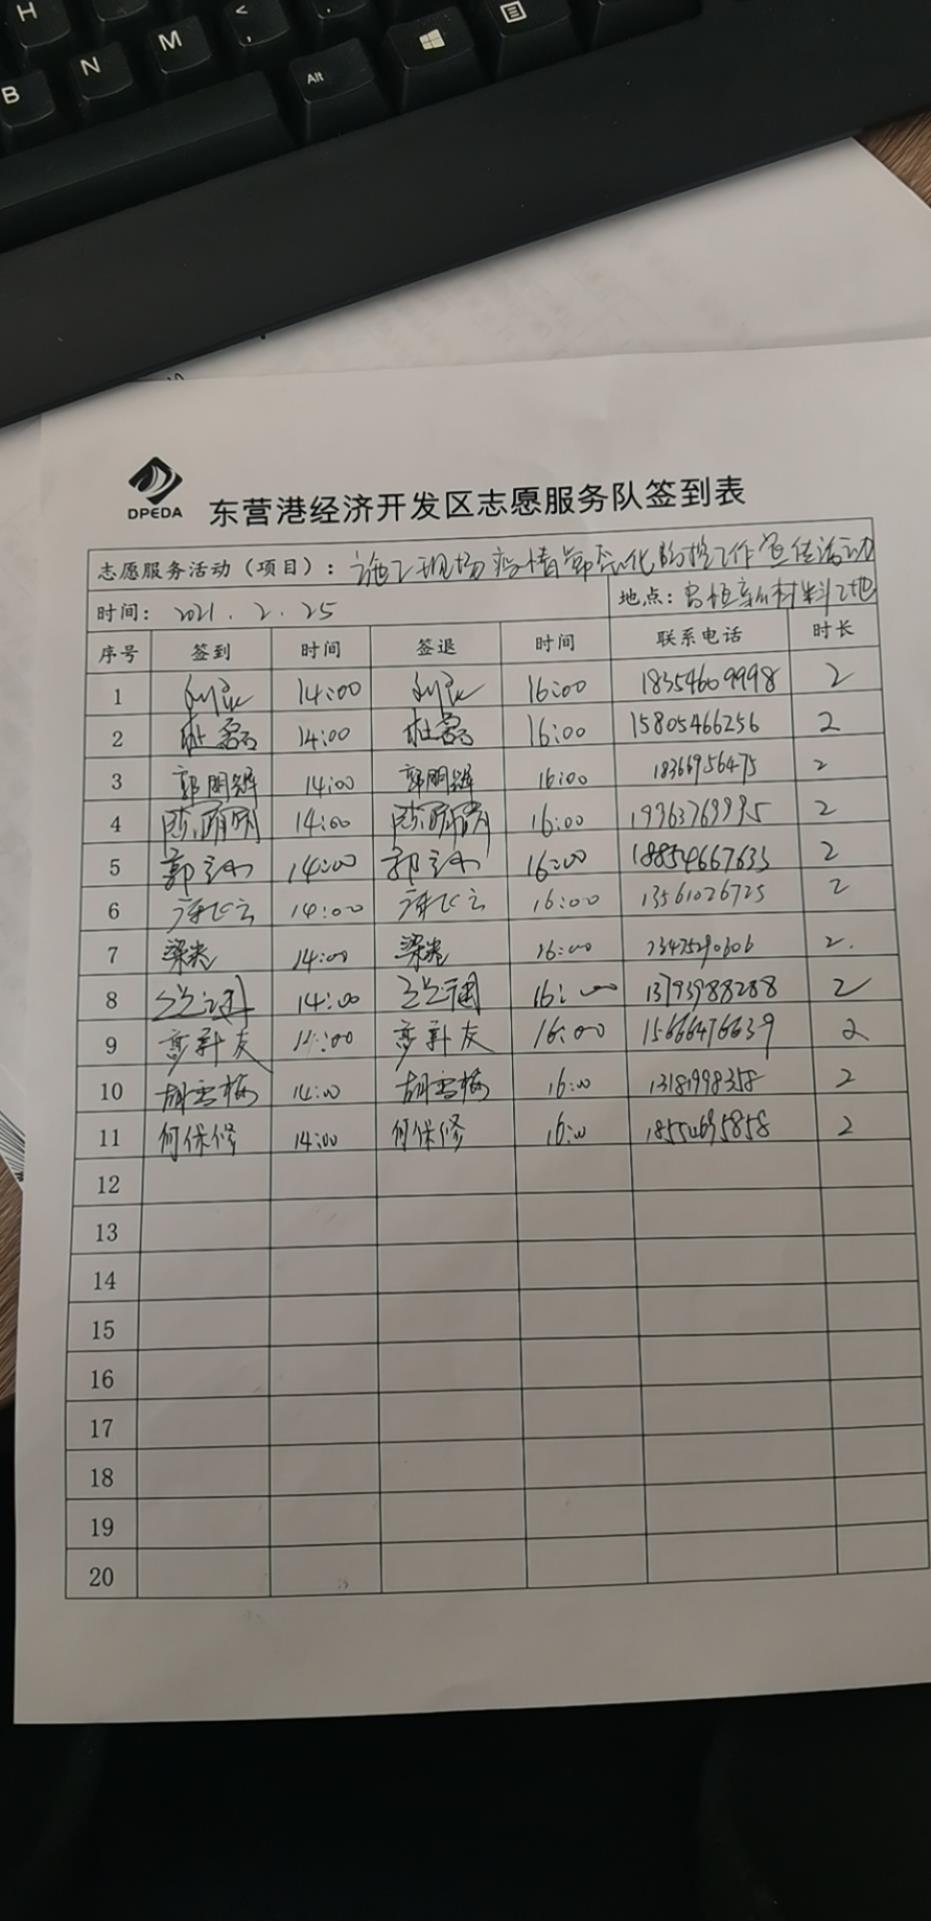 H
<
,
M
N
B
Alt
DPEDA
东营港经济开发区志愿服务队签到表
志愿服务活动（项目）：施工现场疫情常态化防控工作宣传活动
时间： 2021.2.25 地点：
序号 签到 时间 签退 时间 联系电话 时长
1 14:00 16:00 18354609998 2
2 杜磊 14:00 杜磊 16:00 15805466256 2
3 郭明辉 14:00 郭明辉 16:00 18366956475 2
4 14:00 16:00 2
5 14:00 16:00 18854667633 2
6 14:00 16:00 13561026725 2
7 梁类 14:00 梁类 16:00 2.
8 14:00 16:00 13793988288 2
9 14:00 16:00 15666476639 2
10 胡雪梅 14:00 胡雪梅 16:00 13181998358 2
11 何保修 14:00 何保修 16:00 2
12
13
14
15
16
17
18
19
20